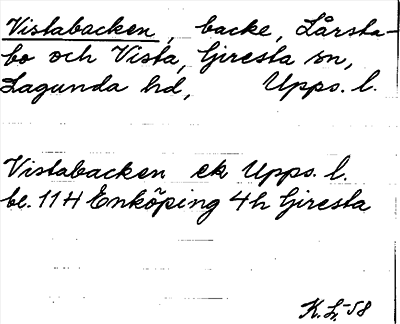 Vistabacken, backe, Lårsta-
bo och Vista, Giresta sn,
Lagunda hd, Upps. l.
Vistabacken ek Upps. l.
bl. 11H Enköping 4h Giresta
K. Lr -58